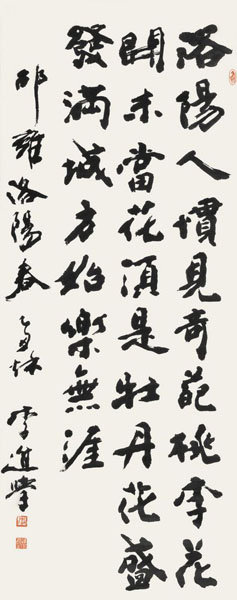 洛陽人慣見奇葩桃李花
開未當花須是牡丹花盛
發滿城方始樂無涯
邵雍洛陽春 乙酉秋 李進學